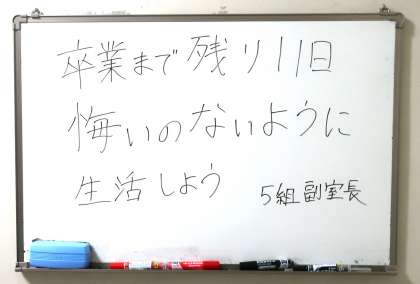 卒業まで残り11日
悔いのないように
生活しよう
5組副室長